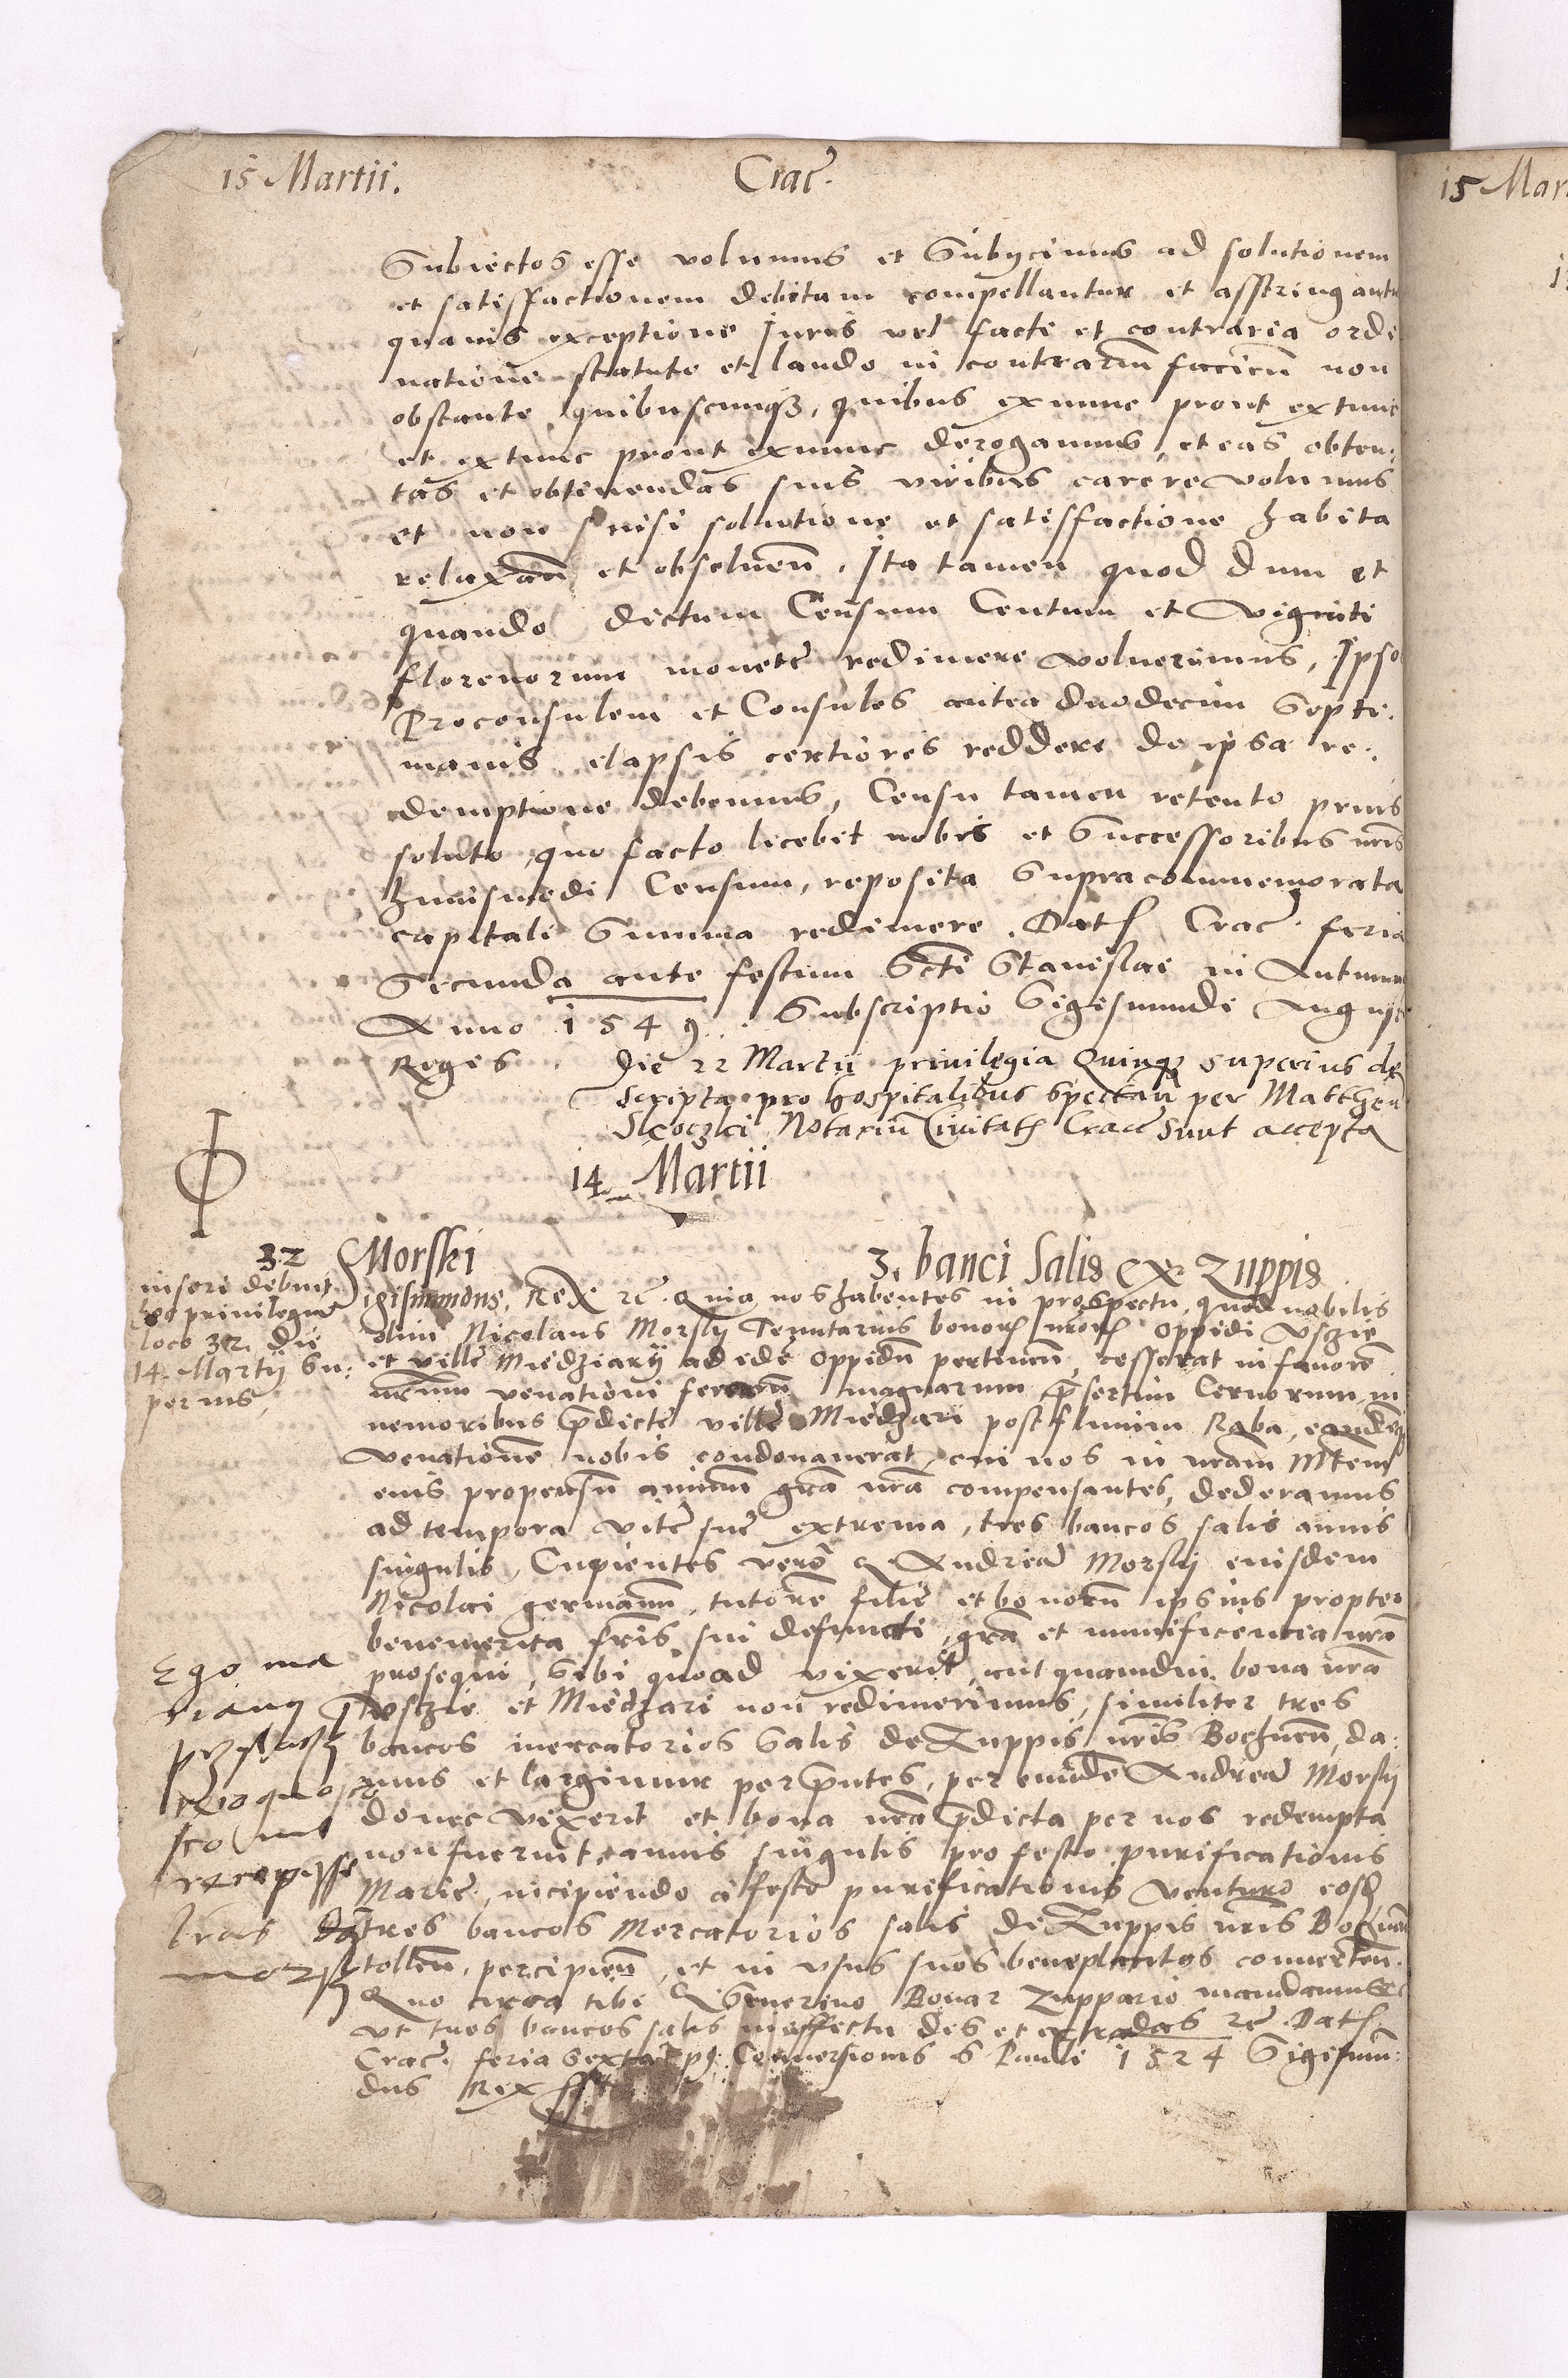 15 Martii. Crac.
Subiectos esse volumus et Subÿcimus ad solutionem
et satisfactionem debitam compellantur et asstringantu
quavis exceptione Iuris vel facti et contraria ordi
natione statuto et laudo in contrariũ faciẽn non
obstante quibuscunqȝ, quibus exnunc prout extunc
et extunc prout exnunc derogamus, et eas obten:
tas et obtinendas suis viribus carere volumus
et non nisi solutione et satisfactione habita
relaxan̄ et obsoluen̄. Ita tamen quod dum et
quando dictum Censum Centum et viginti
florenorum monetę redimere voluerimus, Ipso
Proconsulem et Consules antea duodecim Septi:
manis elapsis certiores reddere de ipsa re:
demptione debemus, Censu tamen retento prius
soluto, quo facto licebit nobis et Successoribus nr̄is
huiusmodi Censum, reposita Supracommemorata
capitali Summa redimere. Dat Crac. feria
Secunda ante festum Scti Stanislai in Autumn
Anno 1549. Subscriptio Sigismundi Augusti
Regis
Die 22 Martii privilegia Quinqȝ superius de
scripta pro hospitalibus spectan̄ per Mattheu
Notariũ Civitat Crac Sunt accepta
14 Martii
32 Morski 3. banci Salis Ex Zuppis
inseri debuit
hoc privilegiũ
loco 32. die
14. Martÿ Su:
perius,
Sigismundus, Rex rc̄. Quia nos habentes in prospectu, quod nobilis
olim Nicolaus Morsky Tenutarius bonorum nr̄orum oppidi Vsczie
et villę Miedziarÿ ad idē oppidũ pertinen̄, cesserat in favorē
nr̄um venationi ferarũ magnarum p̄sertim Cervorum in
nemoribus p̄dictę villę Miedzari post flumen Raba, eandēqȝ
venationē nobis condonaverat, cui nos in nr̄am Mtem
eius propensũ animũ gr̄a nr̄a compensantes, dederamus
ad tempora vitę suę extrema, tres bancos salis annis
singulis, Cupientes vero G Andreā Morsky eiusdem
Nicolai germanũ, tutorē filię et bonorũ ipsius propter
benemerita fr̄is sui defuncti, gr̄a et munificentia nr̄a
prosequi, Sibi quoad vixerit, aut quamdiu bona nr̄a
p̄ Vsczie et Miedzari non redimerimus, similiter tres
bancos mercatorios Salis de Zuppis nr̄is Bochnen̄, da:
mus et largimur per p̄ntes, per eundē Andreā Morsky
donec vixerit et bona nr̄a p̄dicta per nos redempta
non fuerint annis singulis pro festo purificationis
Marię, incipiendo a festo purificationis venturo eosd
tres bancos Mercatorios salis de Zuppis nr̄is Bochnen
tollen̄, percipien̄, et in vsus suos beneplacitos converten̄.
Quo circa tibi G Severino Bonar Zuppario mandamus
vt tres bancos salis in effectu des et extradas rc̄. Dat
Crac. feria Sexta Conversionis S Pauli 1524 Sigismũ:
dus Rex sst
Ego ma
recognosco
me
recepisse
lr̄as